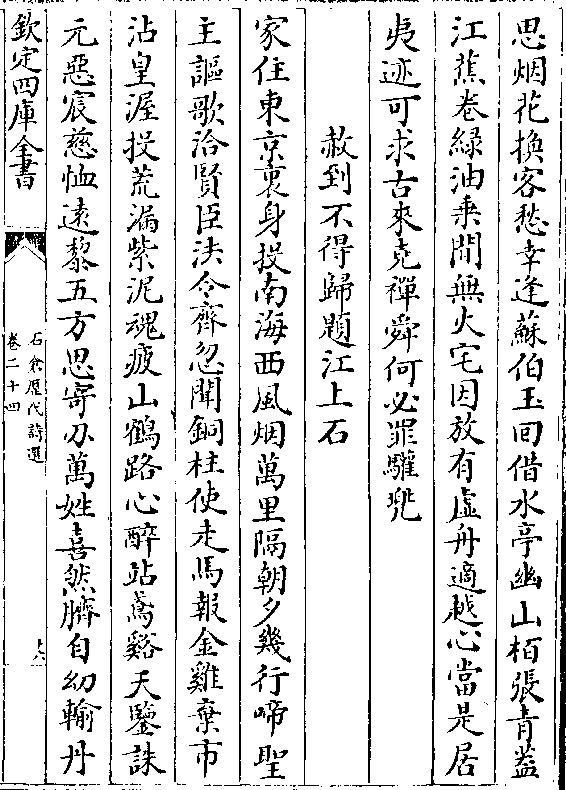 思烟花換客愁幸逢蘇伯玉回借水亭幽山栢張青葢
江蕉卷綠油乗閒無火宅因放有虛舟適越心當是居
夷迹可求古來克禪舜何必罪驩兜
赦到不得歸題江上石
家住東京裏身投南海西風烟萬里隔朝夕幾行啼聖
主謳歌洽賢臣法令齊忽聞銅柱使走馬報金雞棄市
沾皇渥投荒漏紫泥魂疲山鶴路心醉站鳶谿天鑒誅
元惡宸慈恤遠黎五方思寄刃萬姓喜然臍自幼輸丹
欽定四庫全書
石倉歷代詩選
卷二十四